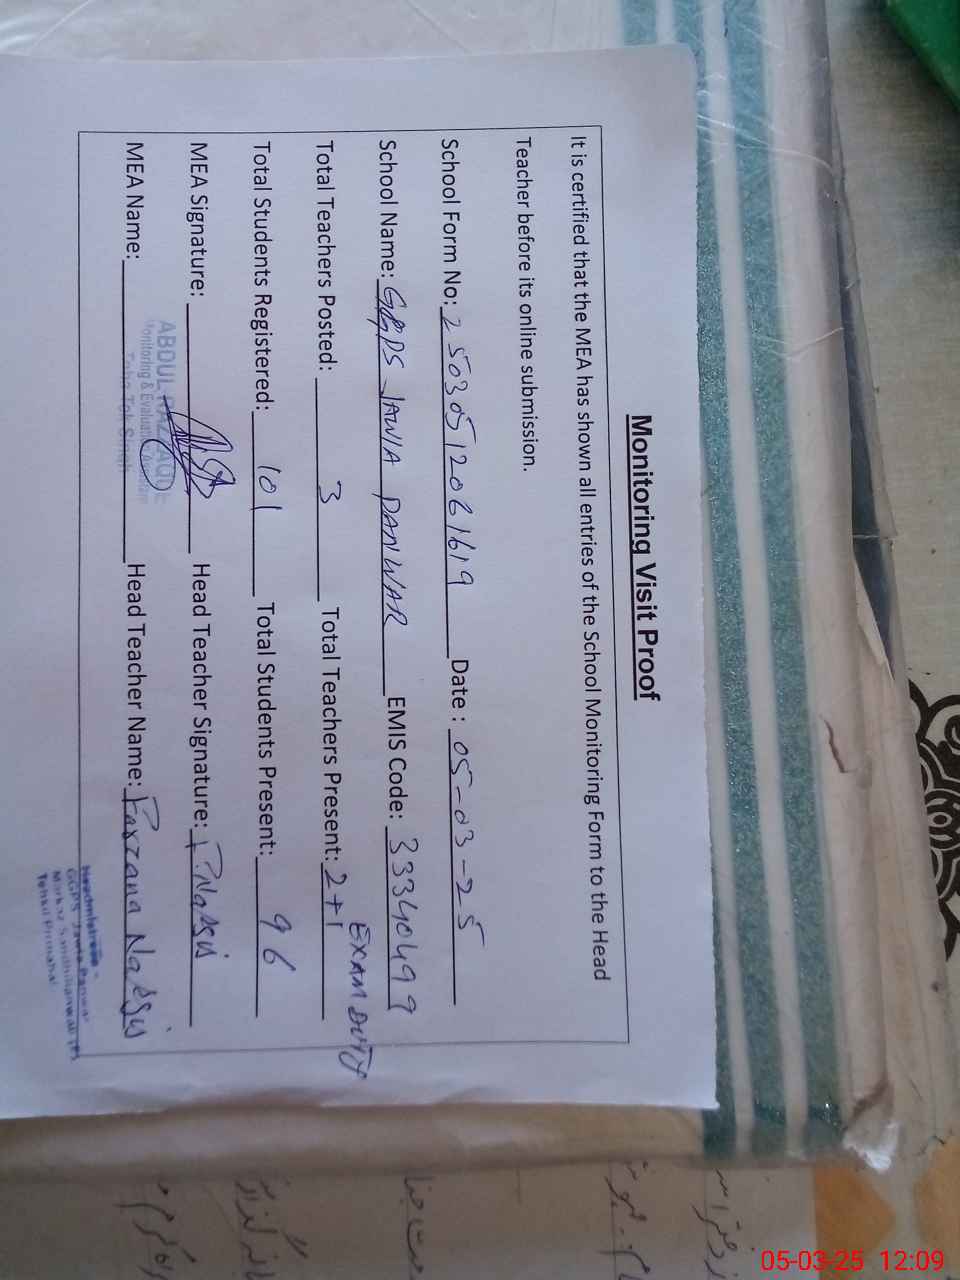 Monitoring Visit Proof
It is certified that the MEA has shown all entries of the School Monitoring Form to the Head
Teacher before its online submission.
School Form No: 25030512061619 Date : 05-03-25
School Name: GGPS JAWIA PANWAR EMIS Code: 33340499
Total Teachers Posted: 3 Total Teachers Present: 2+1 EXAM DUTY
Total Students Registered: 101 Total Students Present: 96
MEA Signature: Head Teacher Signature: F.Nargis
MEA Name: Head Teacher Name: Farzana Nargis
ABDUL RAZZAQUE
Monitoring & Evaluation
Toba Tek Singh
Headmistress
GGPS Jawia Panwar
Markaz Sandhilianwali
Tehsil Pirmahal
05-03-25 12:09